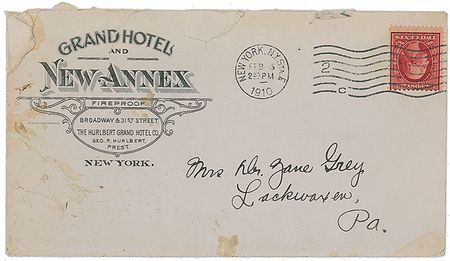 GRAND HOTEL
AND
NEW ANNEX
FIREPROOF
BROADWAY & 31ST STREET,
THE HURLBERT GRAND HOTEL CO.
GEO. F. HURLBERT,
PREST.
NEW YORK.
NEW YORK, N.Y. STA. E
FEB
PM
1910
2
C
Mrs Dr. Zane Grey
Lackwaxen,
Pa.